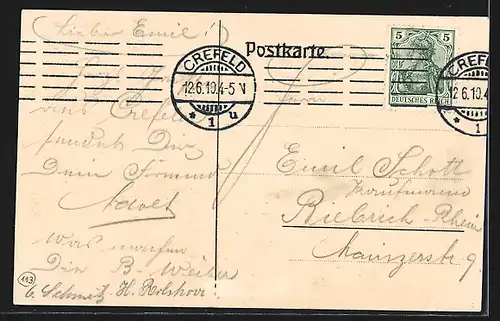 Lieber Emil!
aus Crefeld
sendet Dir
Dein Freund
Adolf
Was machen
Die B. Weiber
C. Schmitz H.
113
Postkarte.
CREFELD
12.6.10.4-5 V
* 1 u
5 5
DEUTSCHES REICH
CREFELD
12.6.10.4
* 1
Herrn
Emil Schott
Kaufmann
Biebrich Rhein
Mainzerstr 9